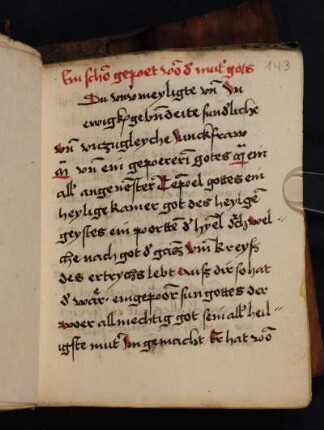 Ein schō gepoet vō d' mut' gots
143
Du vnvermeyligte vn̄ In
ewigk gebn̄deite sunderliche
vn̄ vnczugleyche Junckfraw
vn̄ ein gepoererin gotes
all' angenemster Tempel gottes ein
heylige kamer got des heylgē
geystes ein portte d' hymel
che nach got d' gancz vm̄ kreyß
des ertrychs lebt auß dir so hat
d' ware eingepoor' sun gottes der
woer allmechtig got sein all' heil=
igste mut' Im gemacht Er hat võ